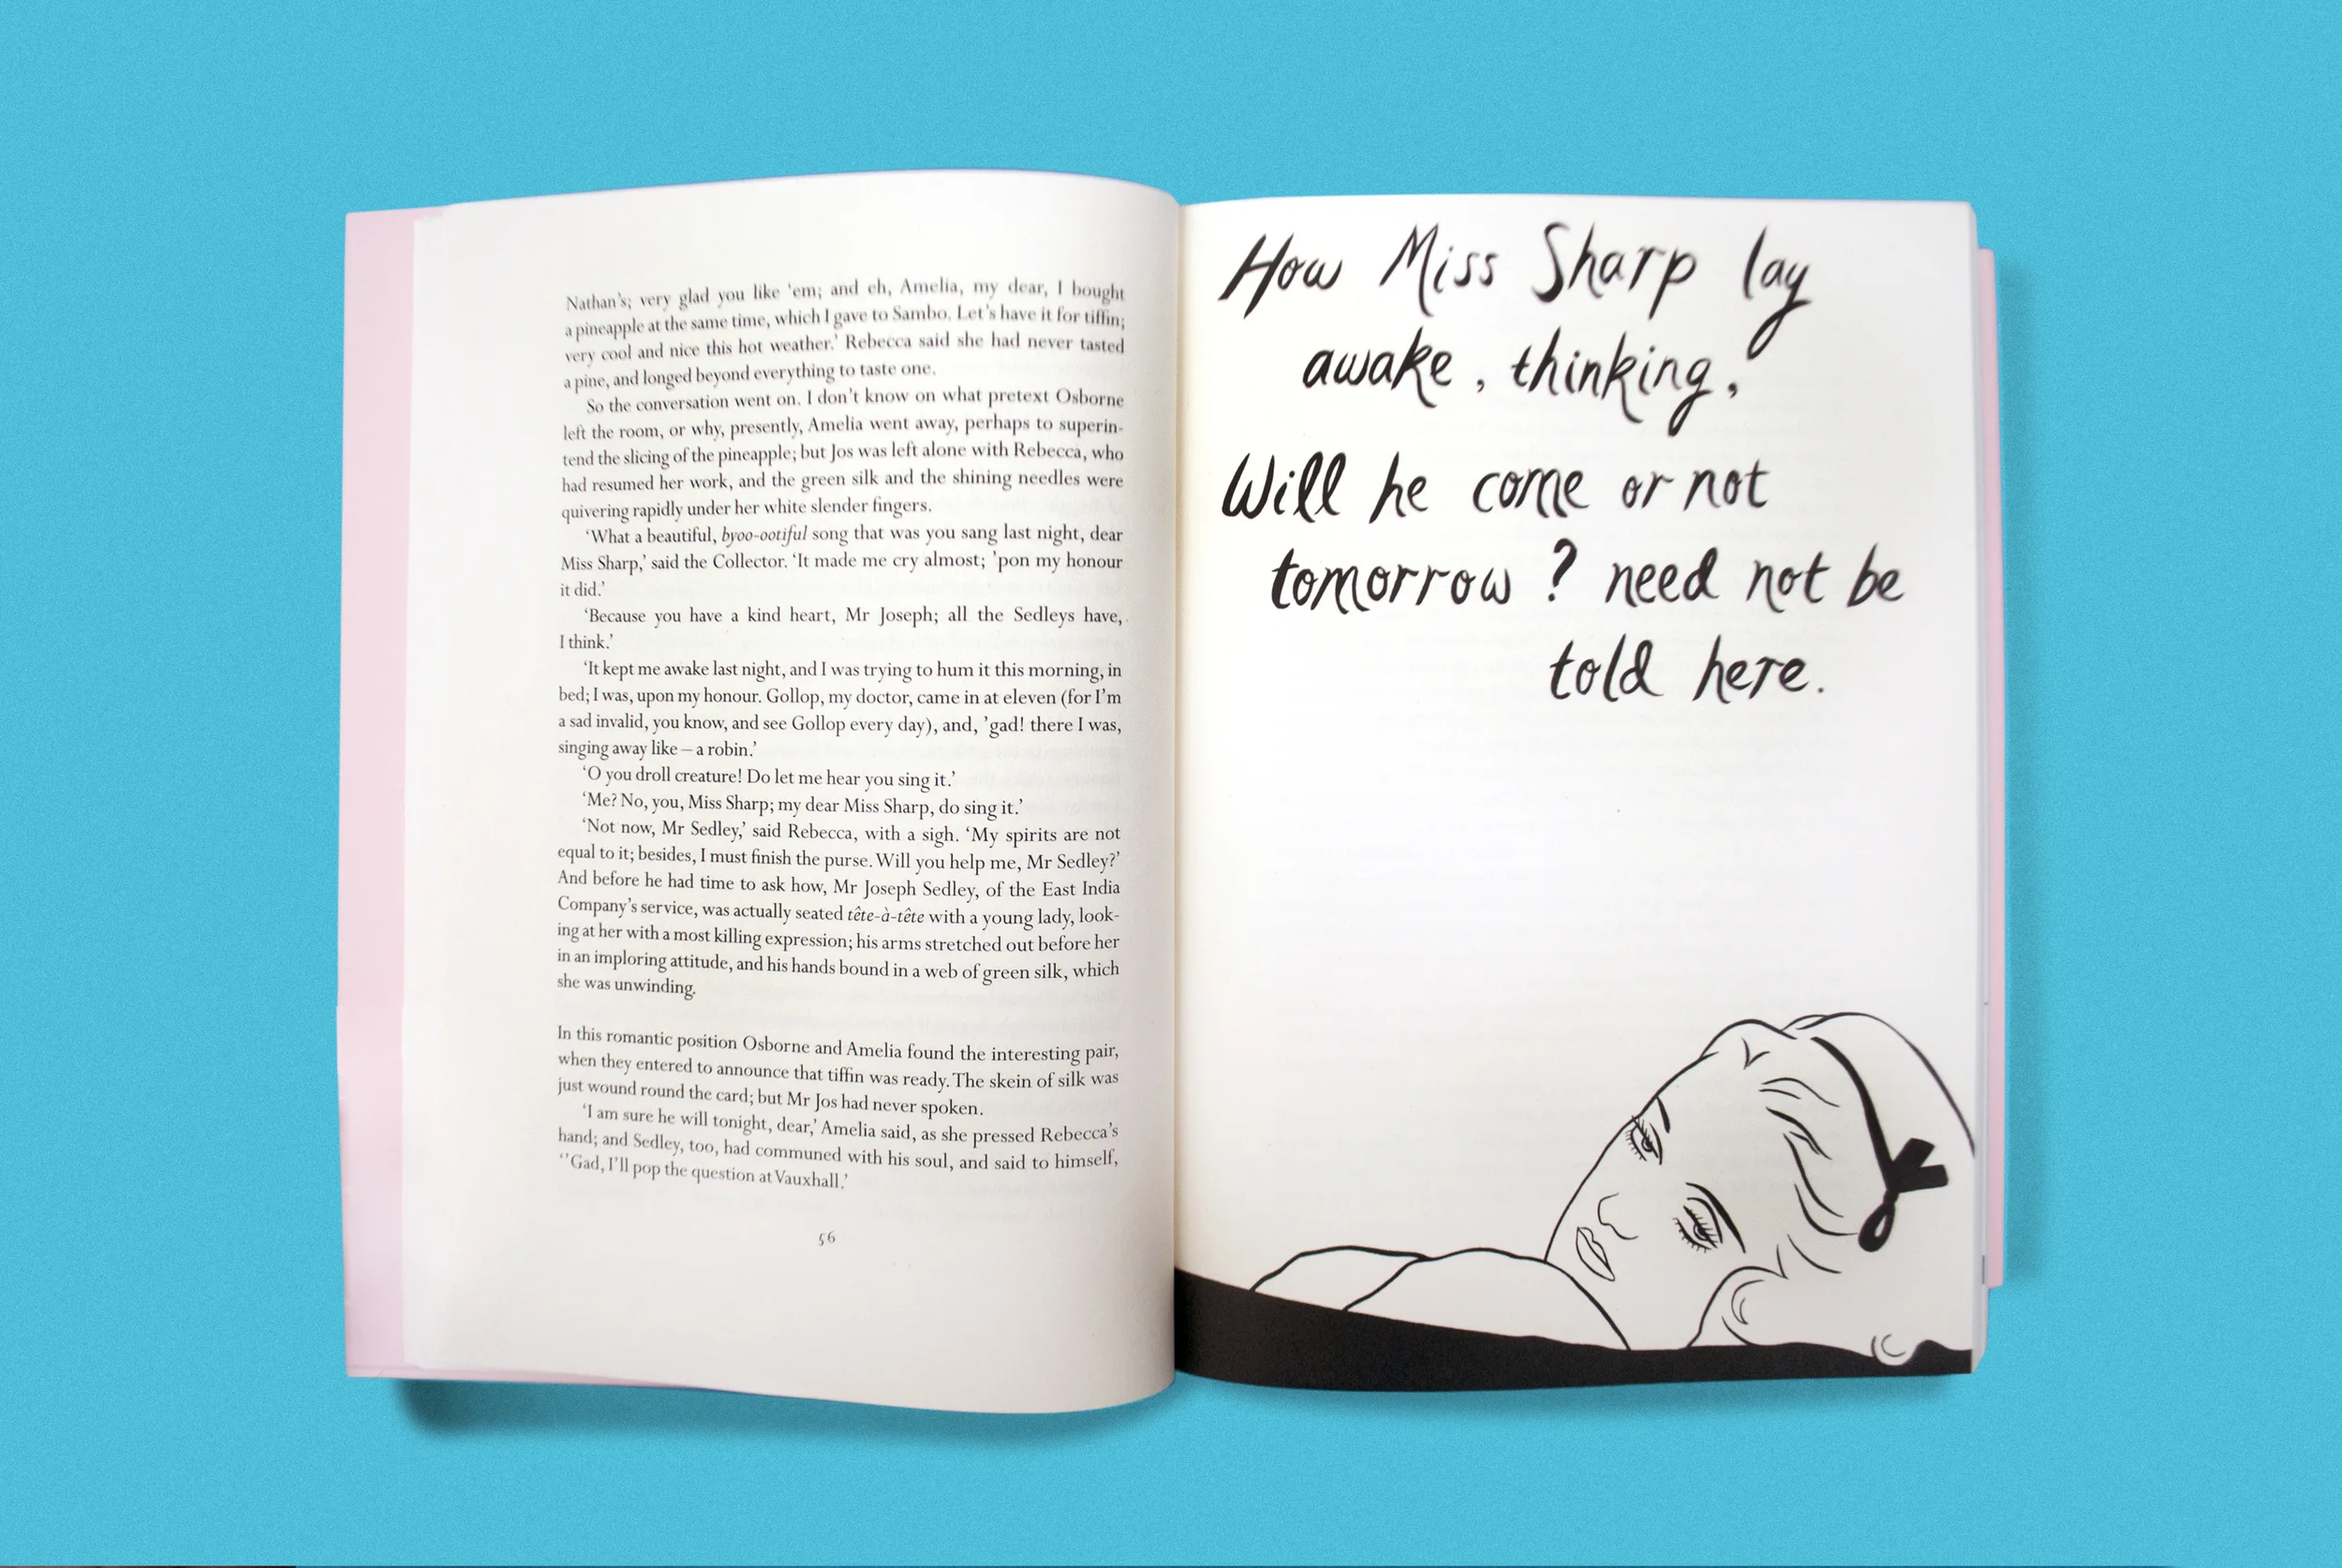 Nathan's; very glad you like 'em; and eh, Amelia, my dear, I bought
a pineapple at the same time, which I gave to Sambo. Let's have it for tiffin;
very cool and nice this hot weather.' Rebecca said she had never tasted
a pine, and longed beyond everything to taste one.
So the conversation went on. I don't know on what pretext Osborne
left the room, or why, presently, Amelia went away, perhaps to superin-
tend the slicing of the pineapple; but Jos was left alone with Rebecca, who
had resumed her work, and the green silk and the shining needles were
quivering rapidly under her white slender fingers.
'What a beautiful, byoo-ootiful song that was you sang last night, dear
Miss Sharp,' said the Collector. 'It made me cry almost; 'pon my honour
it did.'
'Because you have a kind heart, Mr Joseph; all the Sedleys have,
I think.'
'It kept me awake last night, and I was trying to hum it this morning, in
bed; I was, upon my honour. Gollop, my doctor, came in at eleven (for I'm
a sad invalid, you know, and see Gollop every day), and, 'gad! there I was,
singing away like – a robin.'
'O you droll creature! Do let me hear you sing it.'
'Me? No, you, Miss Sharp; my dear Miss Sharp, do sing it.'
'Not now, Mr Sedley,' said Rebecca, with a sigh. 'My spirits are not
equal to it; besides, I must finish the purse. Will you help me, Mr Sedley?'
And before he had time to ask how, Mr Joseph Sedley, of the East India
Company's service, was actually seated tête-à-tête with a young lady, look-
ing at her with a most killing expression; his arms stretched out before her
in an imploring attitude, and his hands bound in a web of green silk, which
she was unwinding.
In this romantic position Osborne and Amelia found the interesting pair,
when they entered to announce that tiffin was ready. The skein of silk was
just wound round the card; but Mr Jos had never spoken.
'I am sure he will tonight, dear,' Amelia said, as she pressed Rebecca's
hand; and Sedley, too, had communed with his soul, and said to himself,
''Gad, I'll pop the question at Vauxhall.'
56
How Miss Sharp lay
awake, thinking,
Will he come or not
tomorrow? need not be
told here.